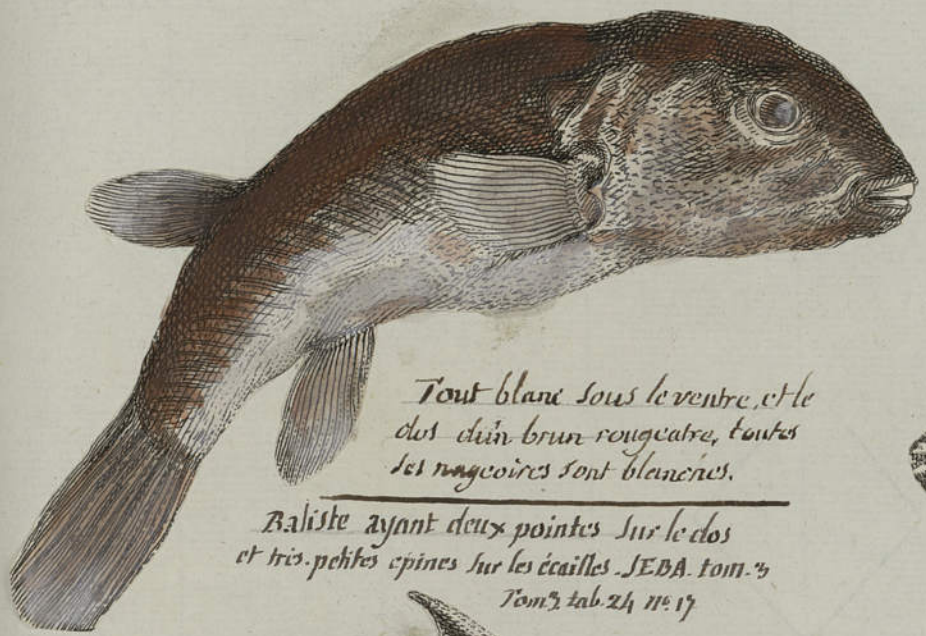 Tout blanc sous le ventre, et le
dos d'un brun rougeatre, toutes
ses nageoires sont blanches.
Baliste ayant deux pointes sur le dos
et tres-petites epines sur les écailles. SEBA. tom. 3
Tom 3. tab. 24 n.º 17